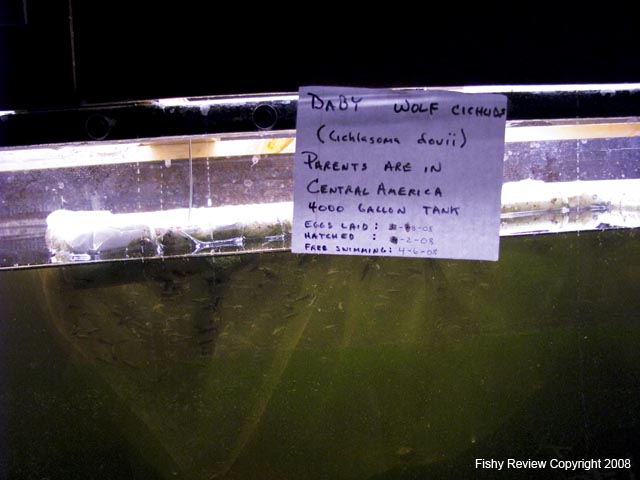 BABY WOLF CICHLIDS
(Cichlasoma dovii)
PARENTS ARE IN
CENTRAL AMERICA
4000 GALLON TANK
EGGS LAID :
HATCHED : -2-08
FREE SWIMMING: 4-6-08
Fishy Review Copyright 2008